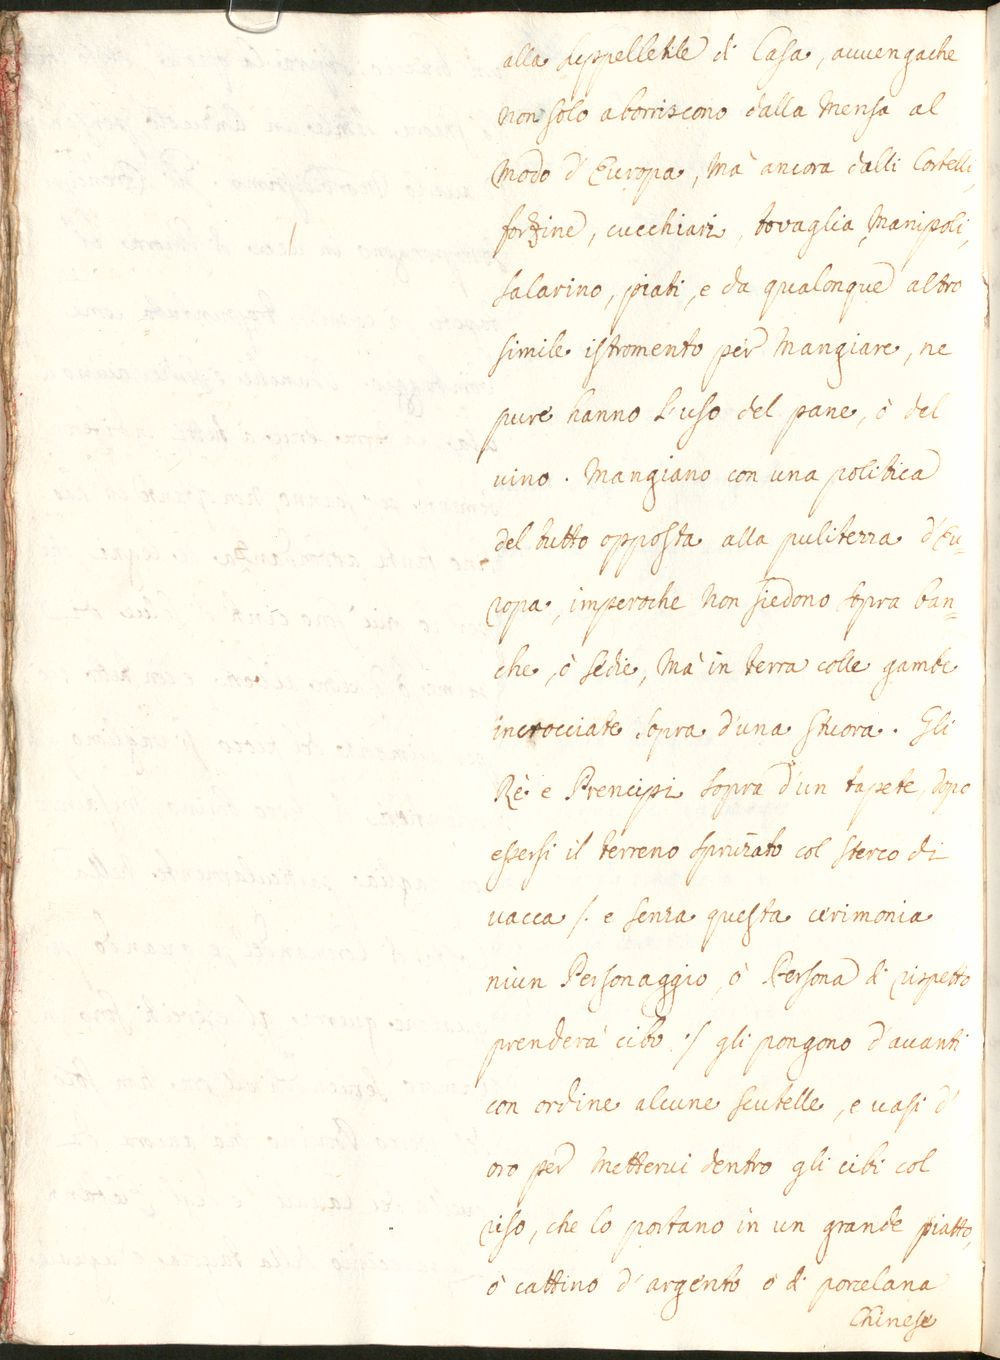 alla suppelletile di Casa, avvengache
non solo aborriscono dalla mensa al
modo d'Europa, mà ancora dalli Cortelli,
forzine, cucchiari, tovaglia, manipoli,
salarino, piati, e da qualonque altro
simile istromento per mangiare, ne
pure hanno l'uso del pane, ò del
vino. Mangiano con una politica
del tutto opposta alla pulitezza d'Eu-
ropa, imperoche non siedono sopra ban-
che, ò sedie, mà in terra colle gambe
incrocciate sopra d'una stuora. Gli
Rè e Prencipi sopra d'un tapete, dopo
essersi il terreno spruzzato col sterco di
vacca /: e senza questa cerimonia
niun Personaggio, ò Persona di rispetto
prenderà cibo :/ gli pongono d'avanti
con ordine alcune scutelle, e vasi d'
oro per mettervi dentro gli cibi col
riso, che lo portano in un grande piatto,
ò cattino d'argento ò di porcelana
Chinese